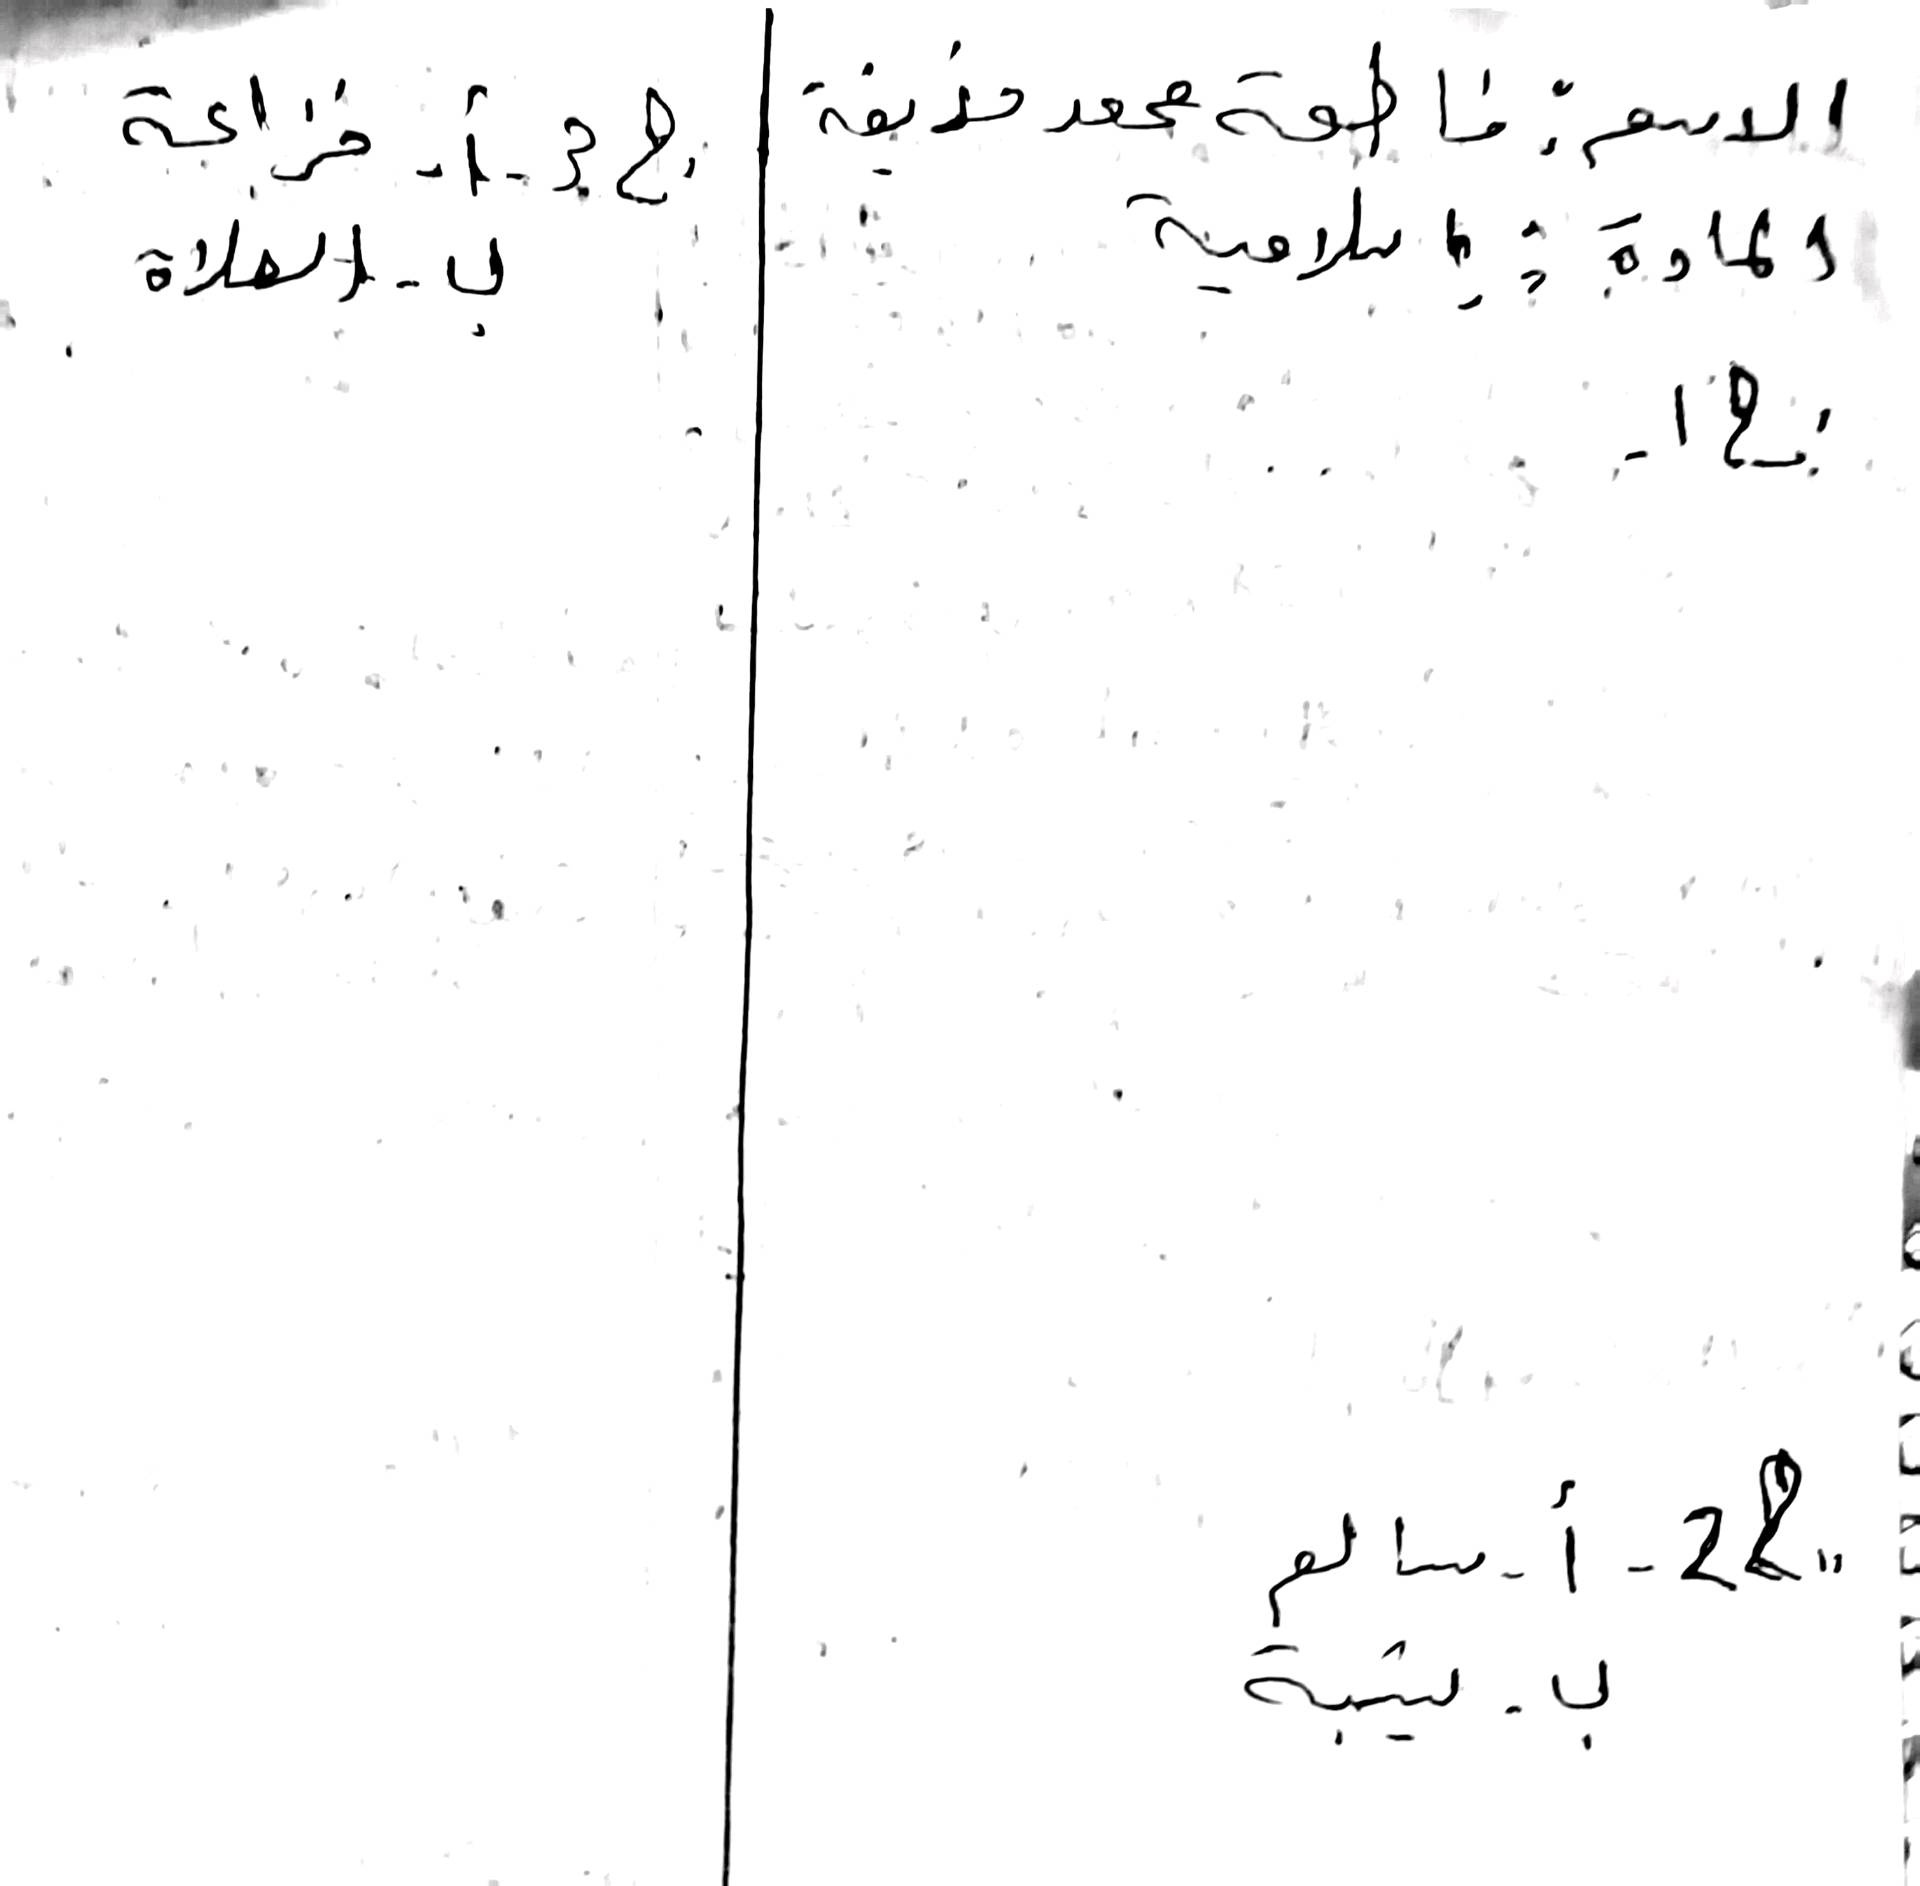 الاسم: فاطمة محمد حذيفة
المادة: إسلامية
ج1-
ج2- أ- سالم
ب- شيبة
ج3- أ- خزاعة
ب- الصلاة